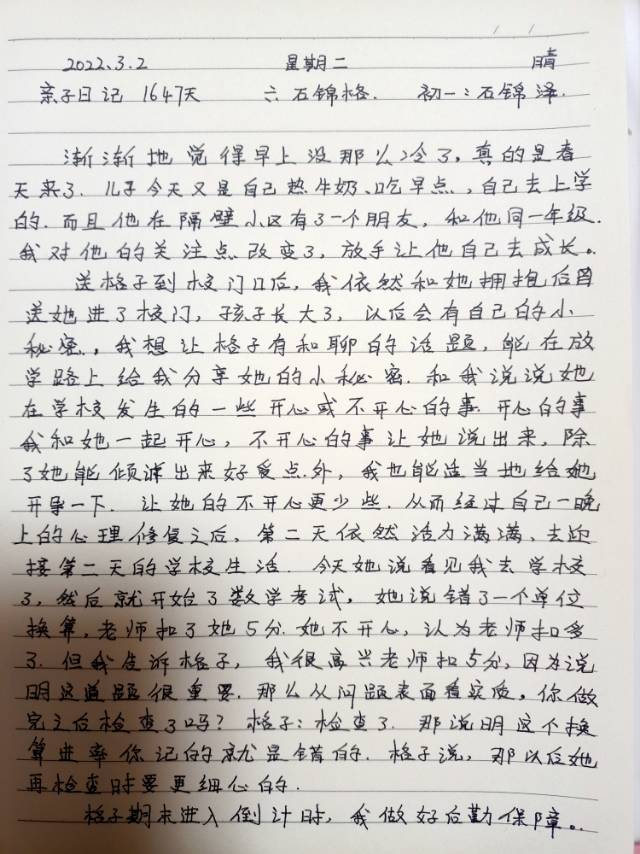 2022.3.2 星期二 晴
亲子日记 1647天 六:石锦格. 初一:石锦泽.
渐渐地觉得早上没那么冷了,真的是春
天来了.儿子今天又是自己热牛奶、吃早点,自己去上学
的.而且他在隔壁小区有了一个朋友,和他同一年级.
我对他的关注点改变了,放手让他自己去成长。
送格子到校门口后,我依然和她拥抱后目
送她进了校门,孩子长大了,以后会有自己的小
秘密,我想让格子有和聊的话题,能在放
学路上给我分享她的小秘密.和我说说她
在学校发生的一些开心或不开心的事.开心的事
我和她一起开心,不开心的事让她说出来,除
了她能倾诉出来好受点外,我也能适当地给她
开导一下.让她的不开心更少些.从而经过自己一晚
上的心理修复之后,第二天依然活力满满、去迎
接第二天的学校生活.今天她说看见我去学校
了,然后就开始了数学考试,她说错了一个单位
换算,老师扣了她5分.她不开心,认为老师扣多
了.但我告诉格子,我很高兴老师扣5分,因为说
明这道题很重要.那么从问题表面看实质,你做
完之后检查了吗?格子:检查了.那说明这个换
算进率你记的就是错的.格子说,那以后她
再检查时要更细心的.
格子期末进入倒计时,我做好后勤保障。